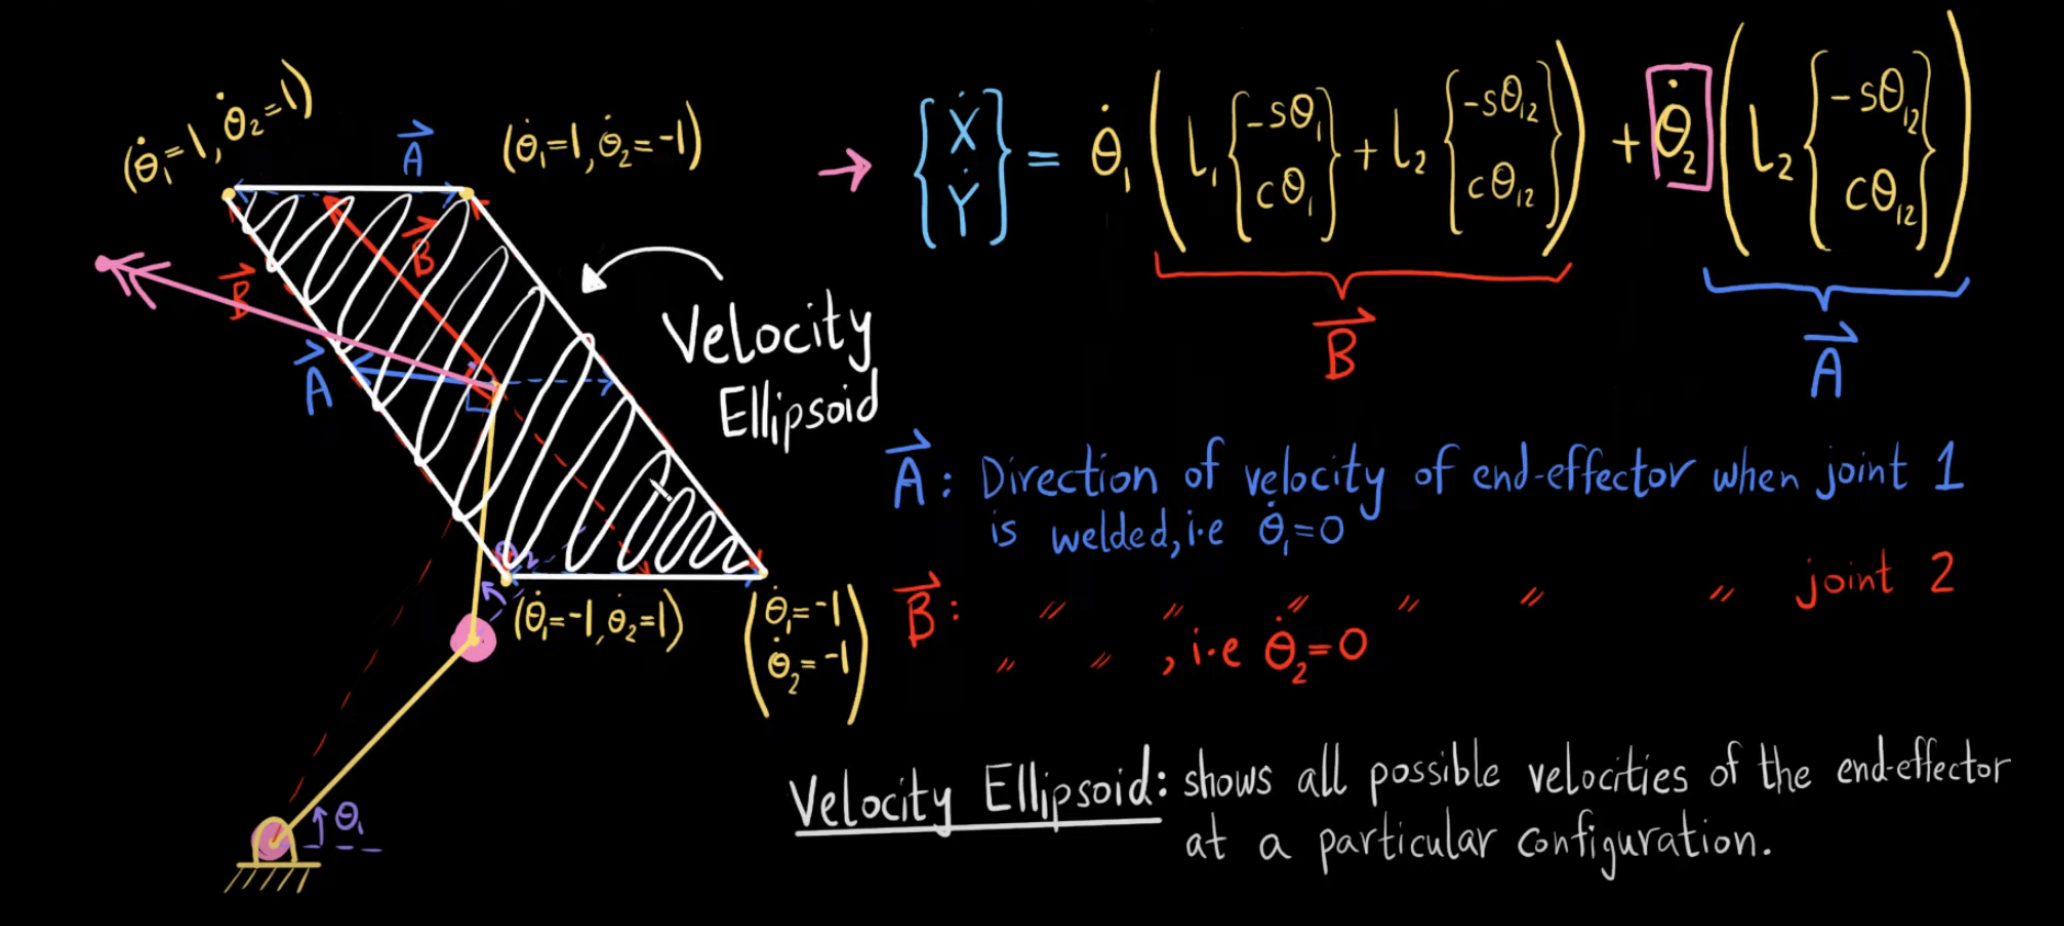 (θ̇₁=1, θ̇₂=1)
A⃗
(θ̇₁=1, θ̇₂=-1)
B⃗
B⃗
A⃗
Velocity
Ellipsoid
θ₂
(θ̇₁=-1, θ̇₂=1)
(θ̇₁=-1
θ̇₂=-1)
θ₁
→ {Ẋ Ẏ} = θ̇₁ (L₁ {-sθ₁ cθ₁} + L₂ {-sθ₁₂ cθ₁₂}) + θ̇₂ (L₂ {-sθ₁₂ cθ₁₂})
B⃗
A⃗
A⃗: Direction of velocity of end-effector when joint 1
is welded, i.e θ̇₁=0
B⃗: " " " " " " joint 2
" " , i.e θ̇₂=0
Velocity Ellipsoid: shows all possible velocities of the end-effector
at a particular configuration.